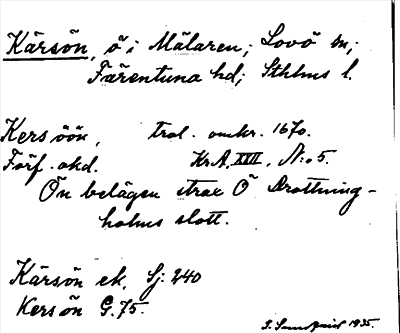 Kärsön, ö i Mälaren; Lovö sn;
Färentuna hd; Sthlms l.
Kersöön, trol. omkr. 1670.
Förf. okd. Kr.A, XXII, N:o 5.
Ön belägen strax Ö Drottning-
holms slott.
Kärsön ek. Sj: 240
Kersön G. 75.
1935